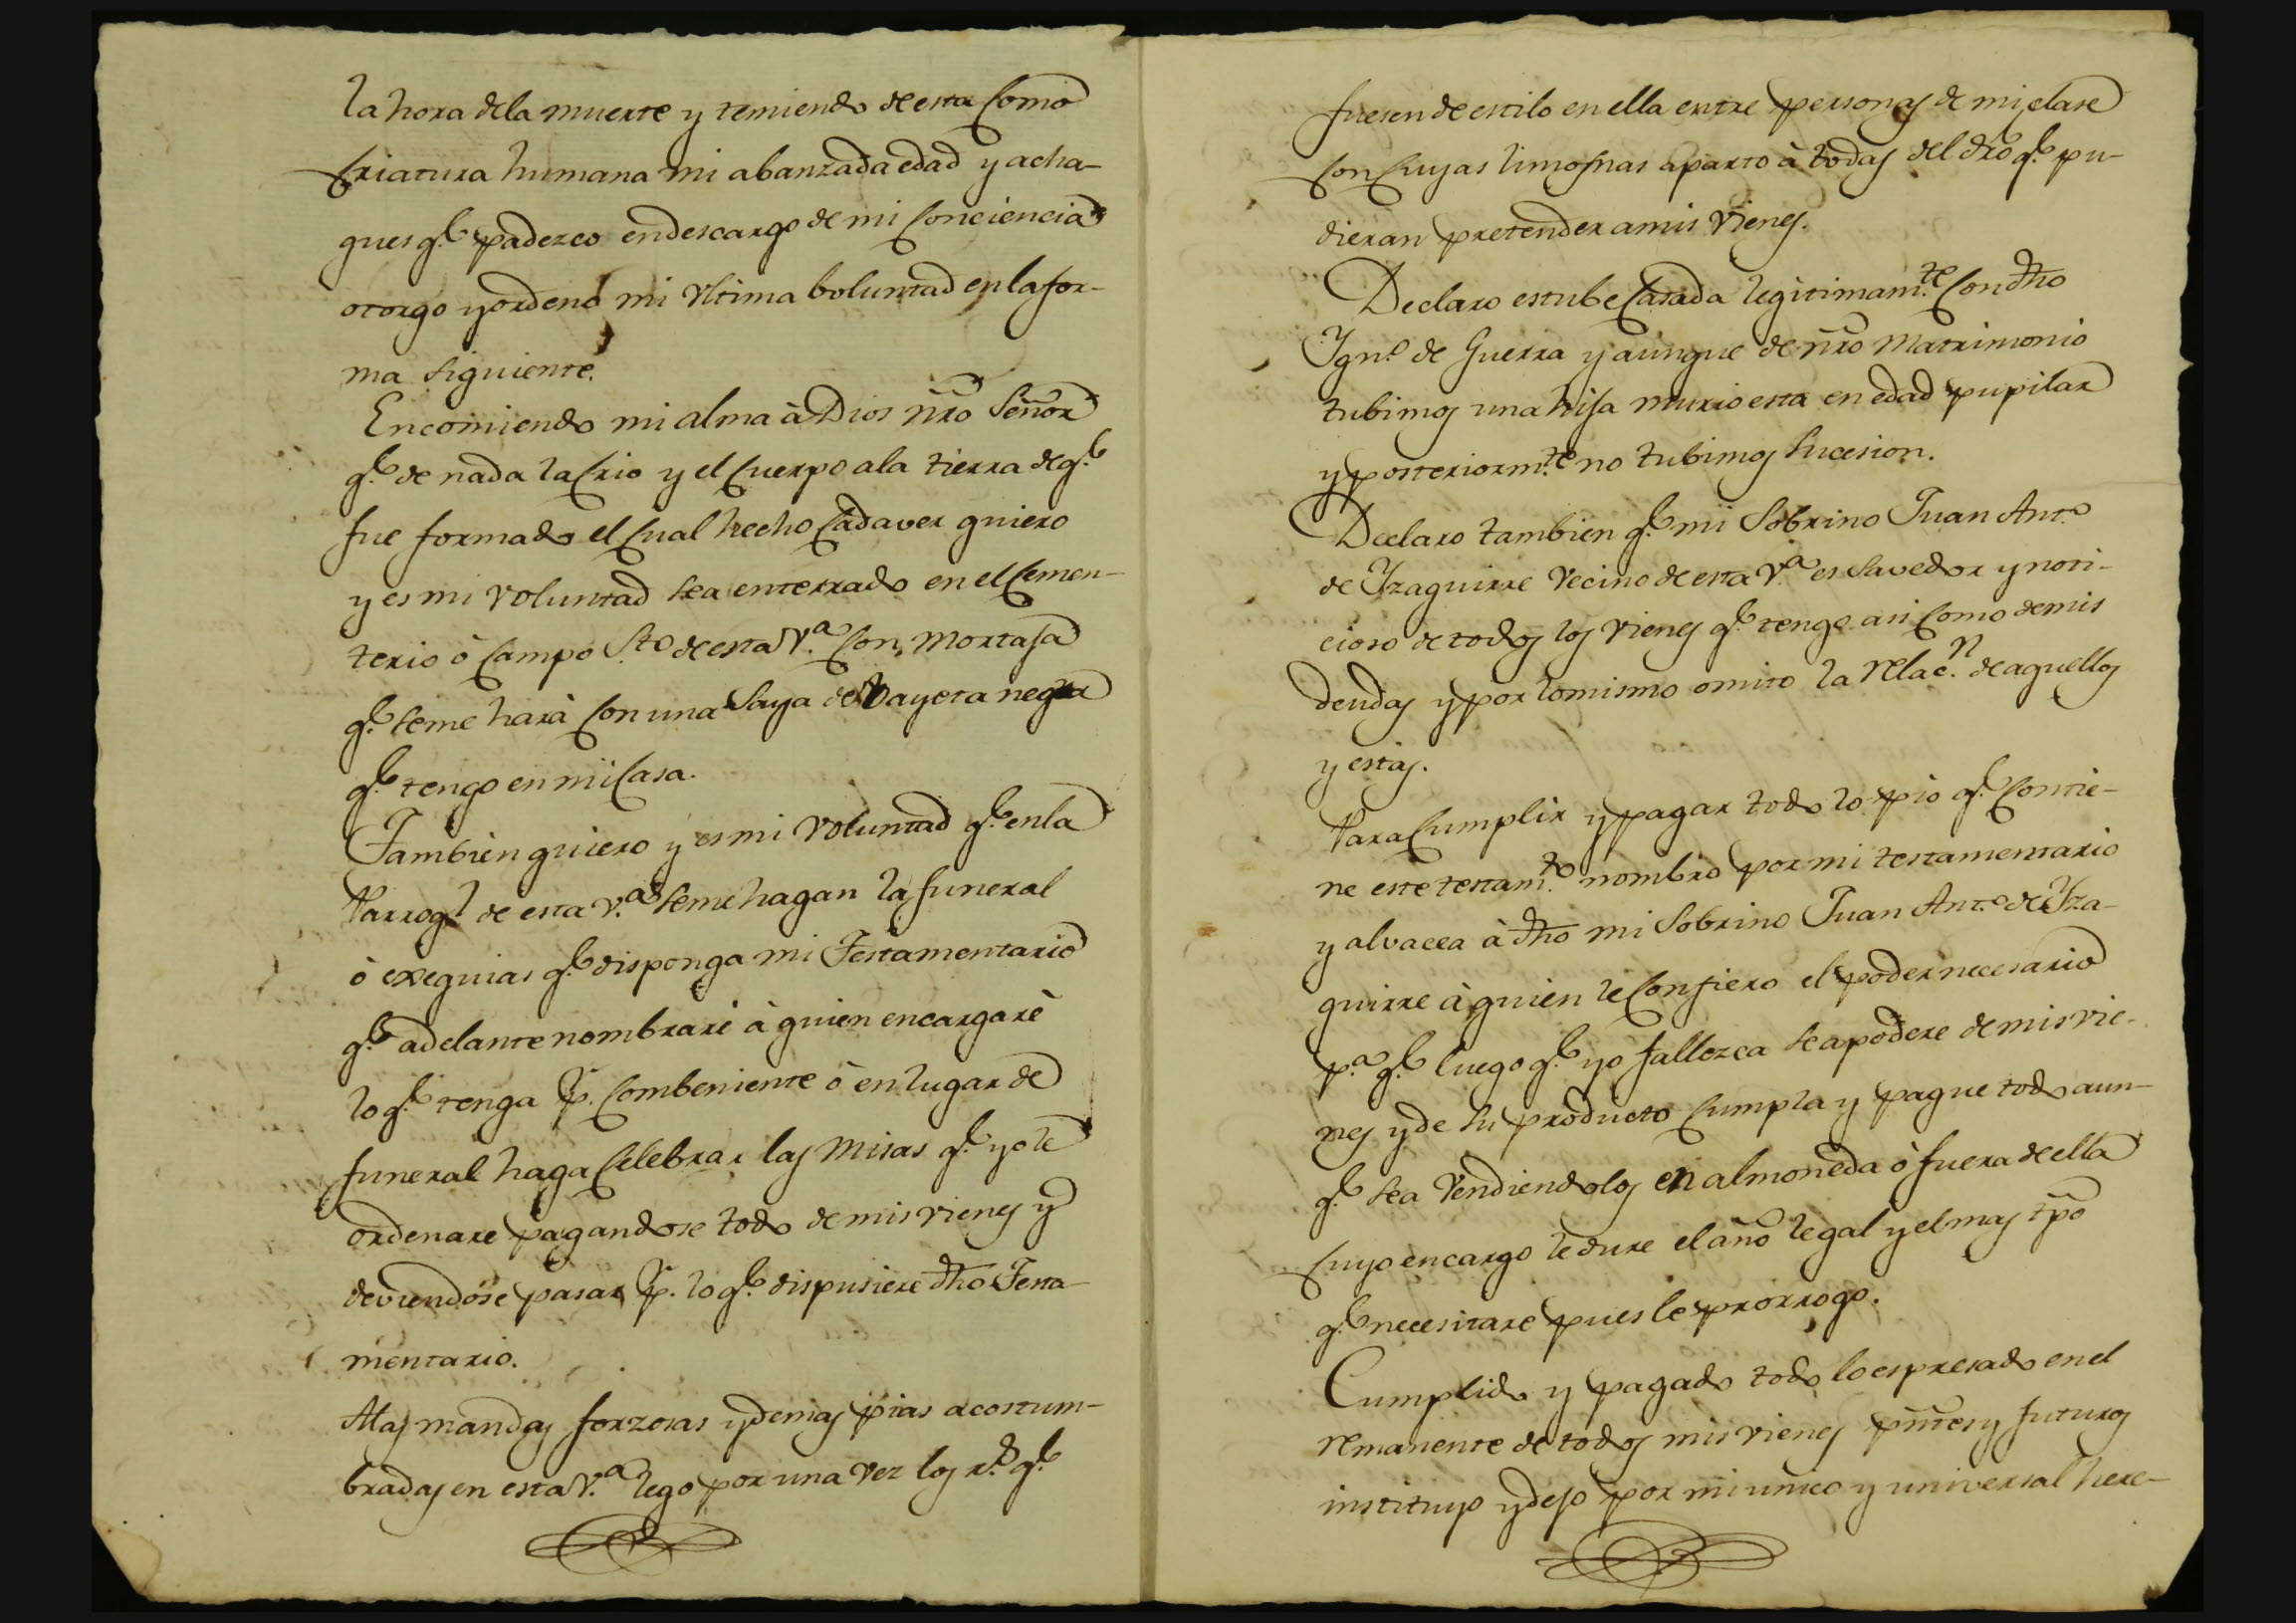 la hora dela muerte y temiendo de esta como
criatura humana mi abanzada edad y acha-
ques q.e padezco en descargo de mi conciencia
otorgo y ordeno mi ultima boluntad en la for-
ma siguiente.
Encomiendo mi alma à Dios ñro Señor
q.e de nada la crio y el cuerpo ala tierra de q.e
fue formado el cual hecho cadaver quiero
y es mi voluntad sea enterrado en el cemen-
terio ò campo S.to de esta V.a con mortaja
q.e se me harà con una saya de bayeta negra
q.e tengo en mi casa.
Tambien quiero y es mi voluntad q.e en la
Parroq.l de esta v.a se me hagan las funeral
ò exequias q.e disponga mi Testamentario
q.e adelante nombrarè à quien encargarè
lo q.e tenga p.r combeniente ò en lugar de
funeral haga celebrar las misas q.e yo le
ordenare pagandose todo de mis vienes y
deviendose pasar p.r lo q.e dispusiere dho Testa-
mentario.
Alas mandas forzosas y demas pias acostum-
bradas en esta V.a lego por una vez los r.s q.e
fuesen de estilo en ella entre personas de mi clase
con cuyas limosnas aparto à todas del dro q.e pu-
dieran pretender a mis vienes.
Declaro estube casada legitimam.te con dho
Ygn.o de Guerra y aunque de ñro matrimonio
tubimos una hija murio esta en edad pupilar
y posteriorm.te no tubimos sucesion.
Declaro tambien q.e mi sobrino Juan Ant.o
de Yzaguirre vecino de esta V.a es savedor y noti-
cioso de todos los vienes q.e tengo asi como de mis
deudas y por lo mismo omito la relac.n de aquellos
y estas.
Para cumplir y pagar todo lo pio q.e contie-
ne este testam.to nombro por mi testamentario
y alvacea à dho mi sobrino Juan Ant.o de Yza-
guirre à quien le confiero el poder necesario
p.a q.e luego q.e yo fallezca se apodere de mis vie-
nes y de su producto cumpla y pague todo aun-
q.e sea vendiendolos en almoneda ò fuera de ella
cuyo encargo le dure el año legal y el mas tpo
q.e necesitare pues le prorrogo.
Cumplido y pagado todo lo espresado en el
remanente de todos mis vienes pñtes y futuros
instituyo y dejo por mi unico y universal here-